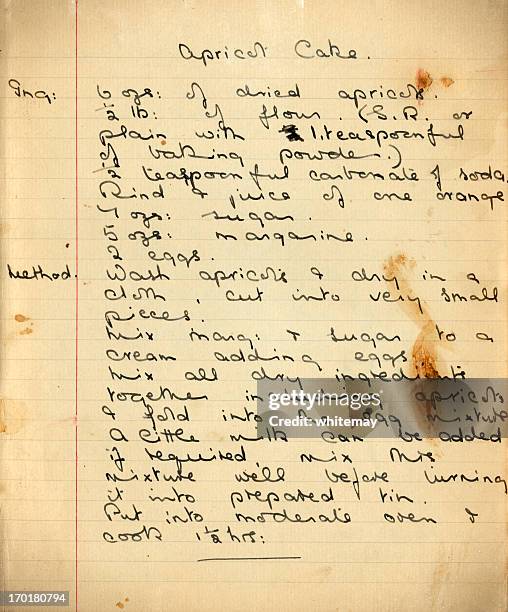 Apricot Cake.
Ing: 6 ozs: of dried apricots.
½ lb: of flour. (S.R. or
plain with 1.teaspoonful
of baking powder.)
½ teaspoonful carbonate of soda.
Rind & juice of one orange
4 ozs: sugar.
5 ozs: margarine.
2 eggs.
Method. Wash apricots & dry in a
cloth, cut into very small
pieces.
Mix marg: & sugar to a
cream adding eggs
Mix all dry ingredients
together apricots
& fold into egg mixture
A little milk can be added
if required, mix this
mixture well before turning
it into prepared tin.
Put into moderate oven &
cook 1½ hrs:
gettyimages
Credit: whitemay
170180794